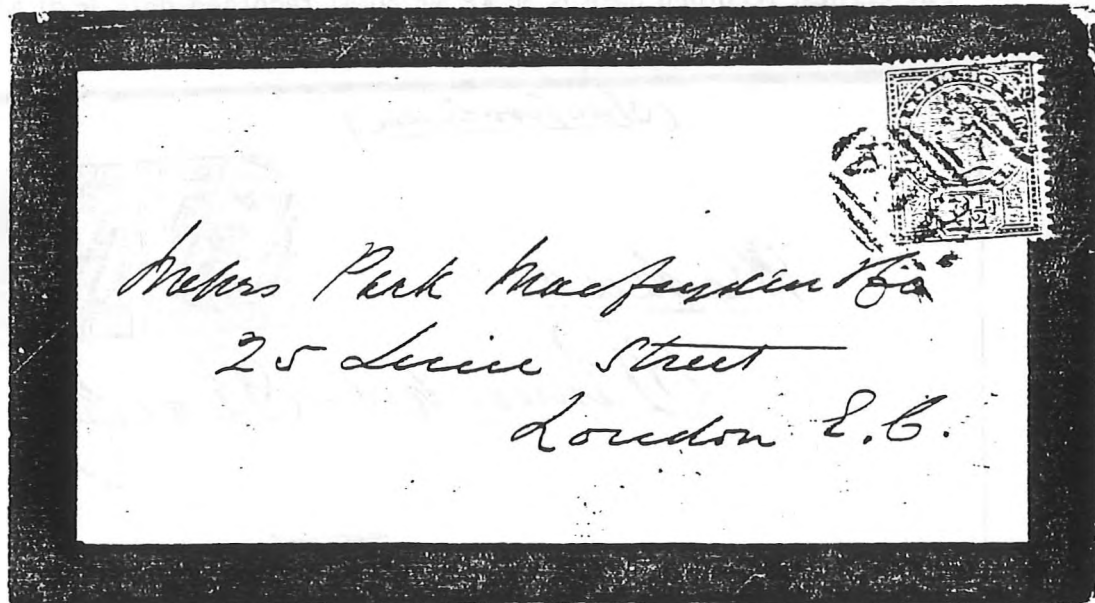 Messrs Park Macfayden & Co
25 Lime Street
London E.C.
2½